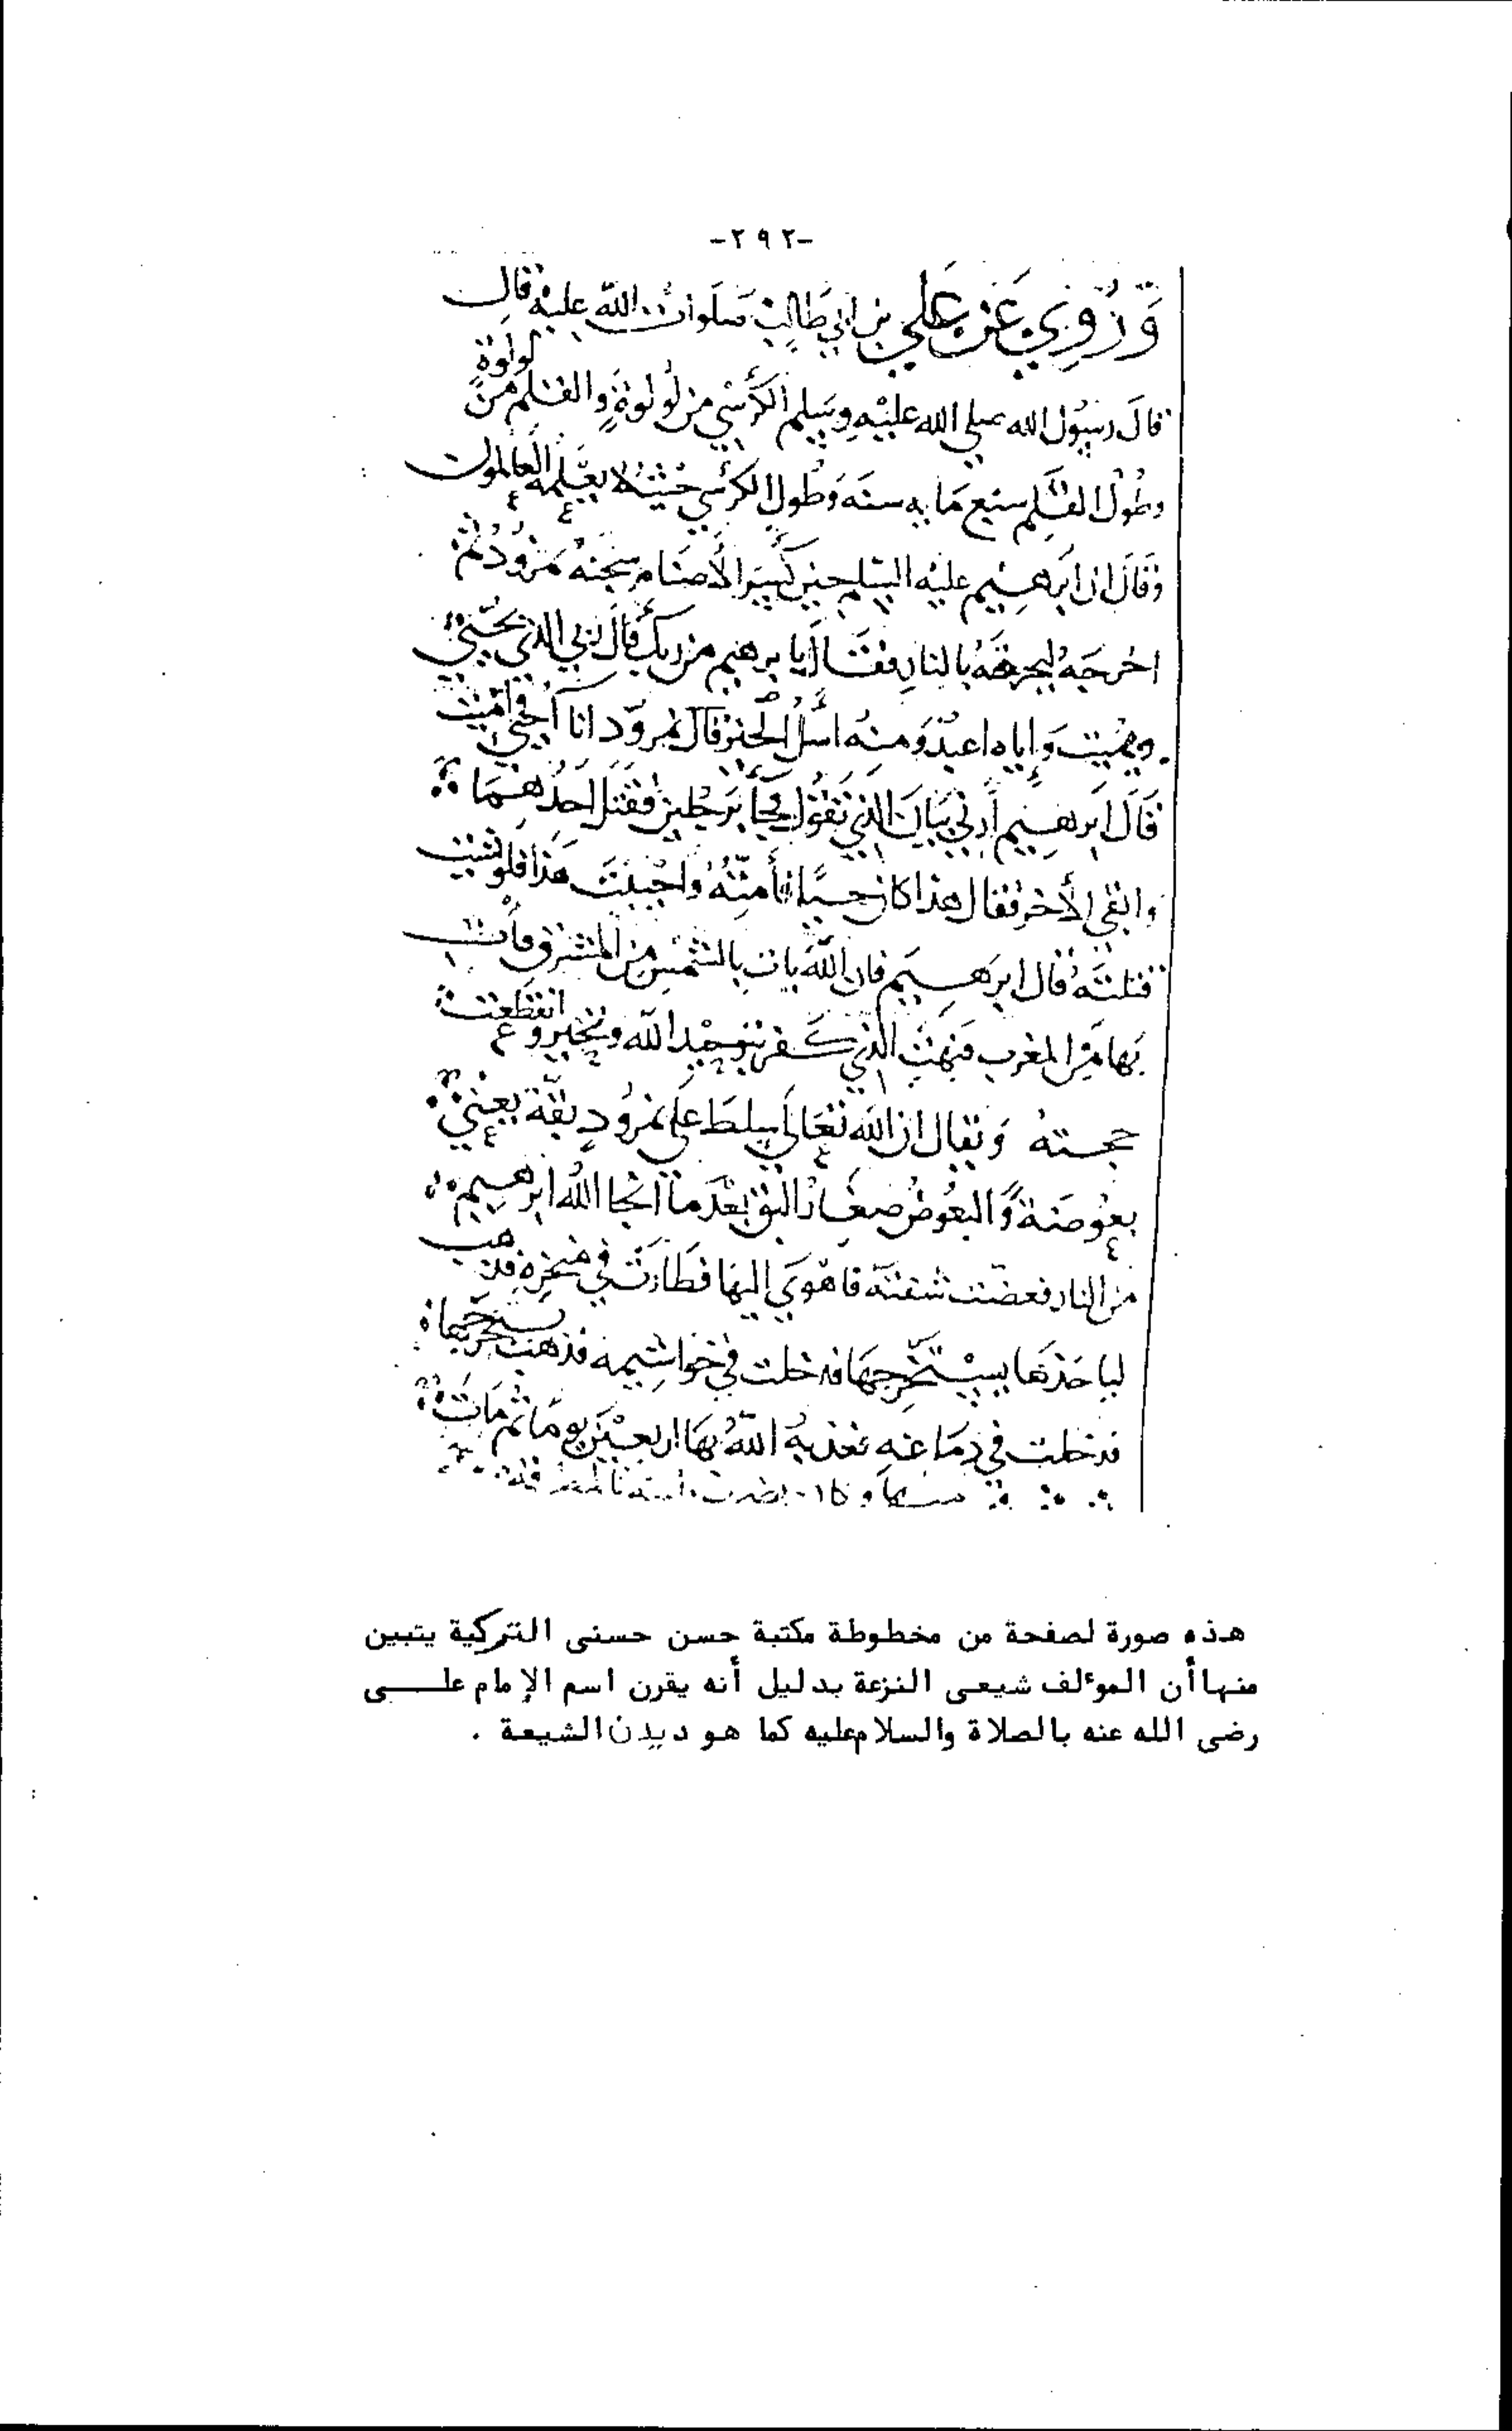 -٢٩٢-
وَرُوِي عَن عَلي بن ابي طَالِب صَلوات الله عليه قال
قالَ رسُول الله صلى الله عليْهِ وسَلم الكُرْسي من لُولوةٍ والقلم من لولوةٍ
وطُول القلم سبع مايه سنَه وَطُول الكرسي حَيْثُ لا يعْلمه العَالمون
وَقَالَ ان ابرَهِيم عليه السَلم حِين كَسَرَ الأَصنَام سجَنهُ نمرُودُ ثم
اخرجَهُ ليحرقهُ بالنارِ فقَال يا برهيم من ربكَ قالَ ربي الذي يُحْيِي
ويميت وَإياه اعبدُ وَمنهُ اسْل الخير قال نمرود انا أُحْيي وَامُيت
قَالَ ابَرهِيم أَرِني بَيَان الذي تَقُول فجآ برَجُلين فَقَتلَ احَدُهمَا
وابقى الأخر فقال هذا كان حيًا فأمتّهُ واحْييَت هَذا فلو شيت
قتلتهُ قال ابرَهِيَم فان اللهَ يات بالشمْس مِن المشرق فات
بها مِن المغرب فبهِتَ الذي كَفر بتوحِيْد الله وتحير و انقطعت
حجته وَيقال ان الله تعَالى سلط عَلى نمرُودٍ بقّة يعْني
بعُوضَة وَالبعُوضُ صغَار البق بعْدَما انجا اللهُ ابرَهيم
من النار فعضت شفتهَ فاهوَي اليهَا فطَارَت في منخرِه فذهب
لياخذَها يسْتَخْرجهَا فدخلت في خواشِيمه فذهب يستخرجها
فدخلت في دمَاغهِ فعذبهُ اللهُ بهَا اربعيْن يومًا ثم مَاتَ
هذه صورة لصفحة من مخطوطة مكتبة حسن حسنى التركية يتبين
منها أن المؤلف شيعى النزعة بدليل أنه يقرن اسم الإمام علــــى
رضى الله عنه بالصلاة والسلام عليه كما هو ديدن الشيعة .